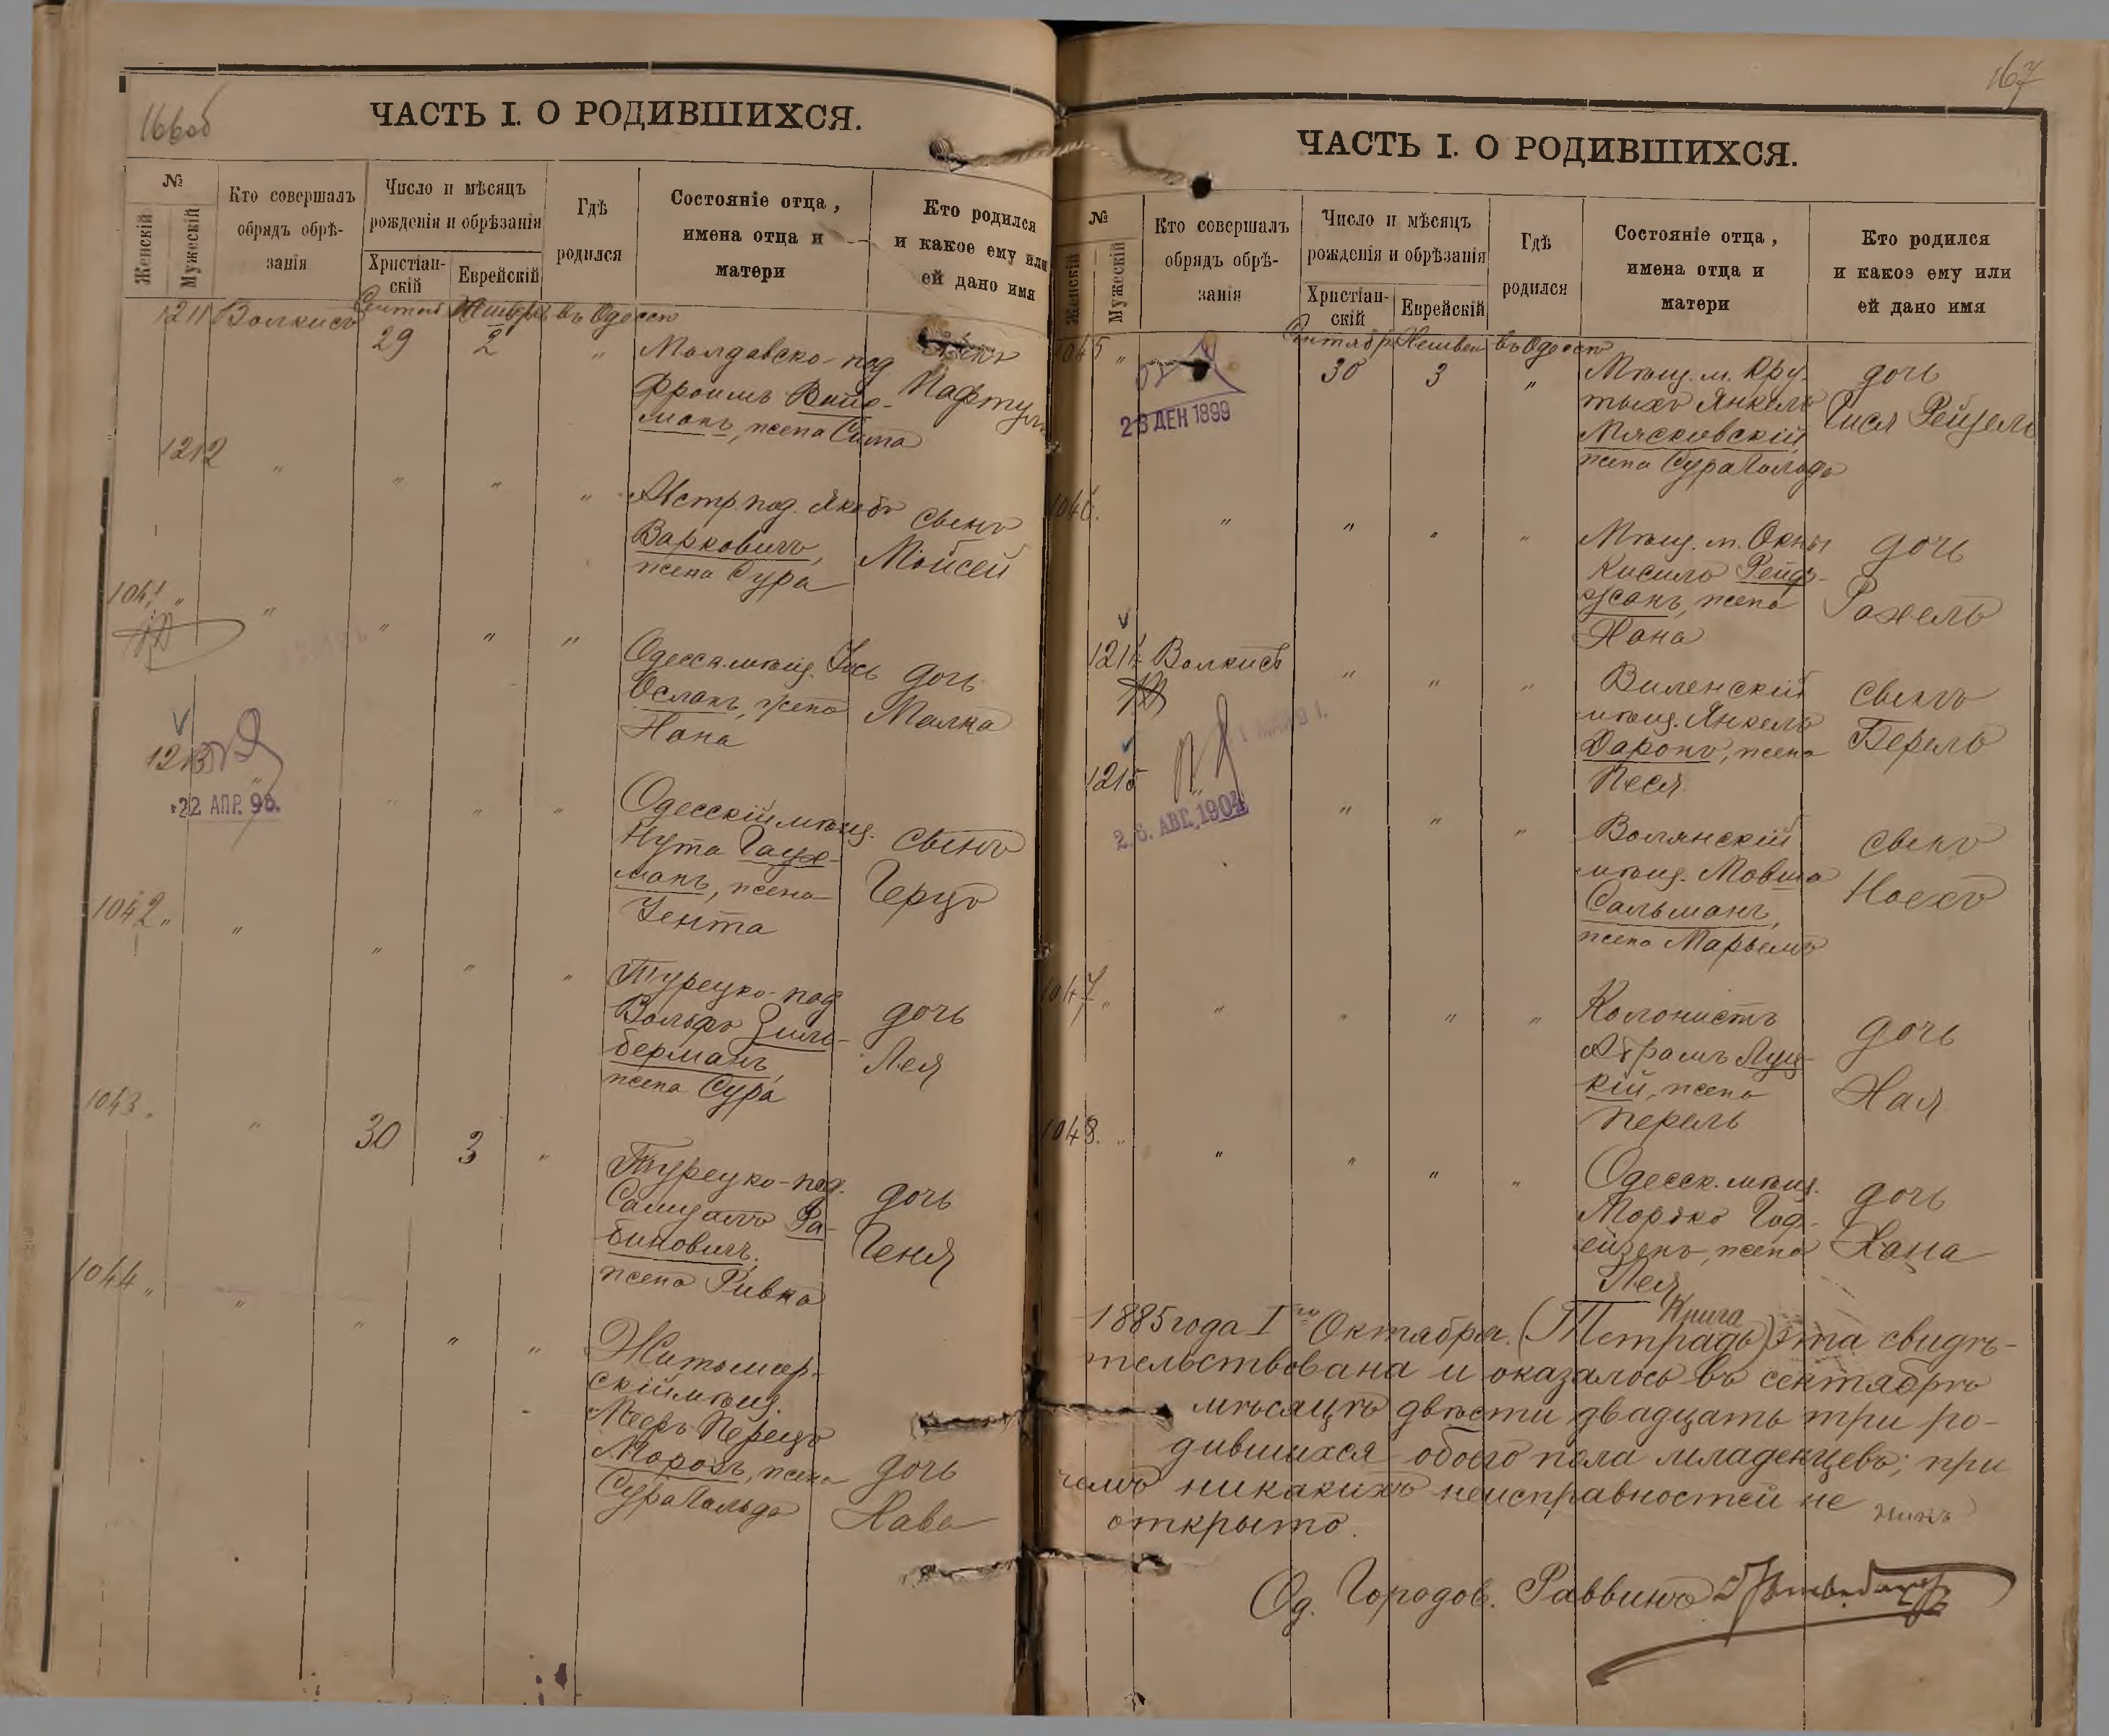 166об
ЧАСТЬ I. О РОДИВШИХСЯ.
№
Женскій
Мужескій
Кто совершалъ
обрядъ обрѣ-
занія
Число и мѣсяцъ
рожденія и обрѣзанія
Христіан-
скій
Еврейскій
Гдѣ
родился
Состояніе отца,
имена отца и
матери
Кто родился
и какое ему или
ей дано имя
1211 Волкисъ
29 2 "
въ Одессѣ
Молдавско-под
Фроимъ
манъ, жена Сима
Нафтули
1212 " " " "
Австр. под. Якобъ
Варковичъ,
жена Сура
сынъ
Мойсей
1041 " " " " "
Одесск. мѣщ. Усь
Осланъ, жена
Хана
дочь
Малка
1213 " " " "
22 АПР. 98.
Одесскій мѣщ.
Нута Гаух-
манъ, жена
Зента
сынъ
Герцъ
1042 " " " " "
Турецко-под
Вольфъ Зиль-
берманъ,
жена Сура
дочь
Лея
1043 " 30 3 "
Турецко-под.
Самуэлъ Ра-
биновичъ,
жена Ривка
дочь
Геня
1044 " " " " "
Житомир-
скій мѣщ.
Мееръ Перецъ
Морозъ, жена
Сура Гольда
дочь
Хава
167
ЧАСТЬ I. О РОДИВШИХСЯ.
№
Женскій
Мужескій
Кто совершалъ
обрядъ обрѣ-
занія
Число и мѣсяцъ
рожденія и обрѣзанія
Христіан-
скій
Еврейскій
Гдѣ
родился
Состояніе отца,
имена отца и
матери
Кто родился
и какое ему или
ей дано имя
1045 "
Сентябр. Хешвен въ Одессѣ
30 3 "
28 ДЕК 1899
Мѣщ. м. Кру-
тыхъ Янкель
Мясковскій
жена Сура Гольда
дочь
Гися Рейзель
1046. " " " "
Мѣщ. м. Окны
Кисилъ Рейдз-
жанъ, жена
Хана
дочь
Рахель
1214 Волкисъ " " "
Виленскій
мѣщ. Янкель
Даронъ, жена
Песя
сынъ
Берель
1215 " " " "
26. АВГ. 1904
Волянскій
мѣщ. Мовша
Сальманъ,
жена Марьемъ
сынъ
Носхъ
1047 " " " " "
Колонистъ
Абрамъ Луц-
кій, жена
Перель
дочь
Хая
1048. " " " " "
Одесск. мѣщ.
Мордко Год-
ейзенъ, жена
Лея
дочь
Хана
Книга
1885 года 1го Октября. (Тетрадь) эта свидѣ-
тельствована и оказалось въ сентябрѣ
мѣсяцѣ двѣсти двадцать три ро-
дившихся обоего пола младенцевъ; при
чемъ никакихъ неисправностей не
открыто.
Од. Городов. Раввинъ